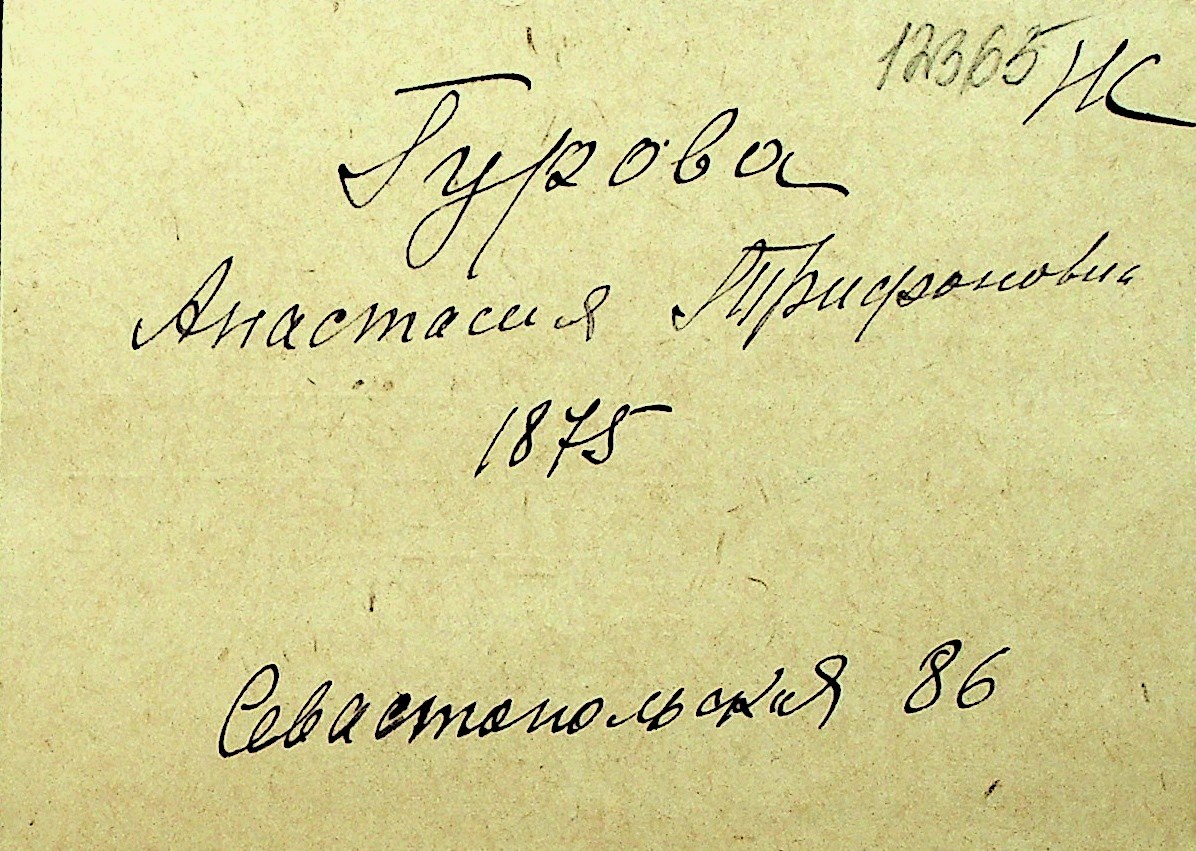 12365 НС
Гурова
Анастасия Трифоновна
1875
Севастопольская 86